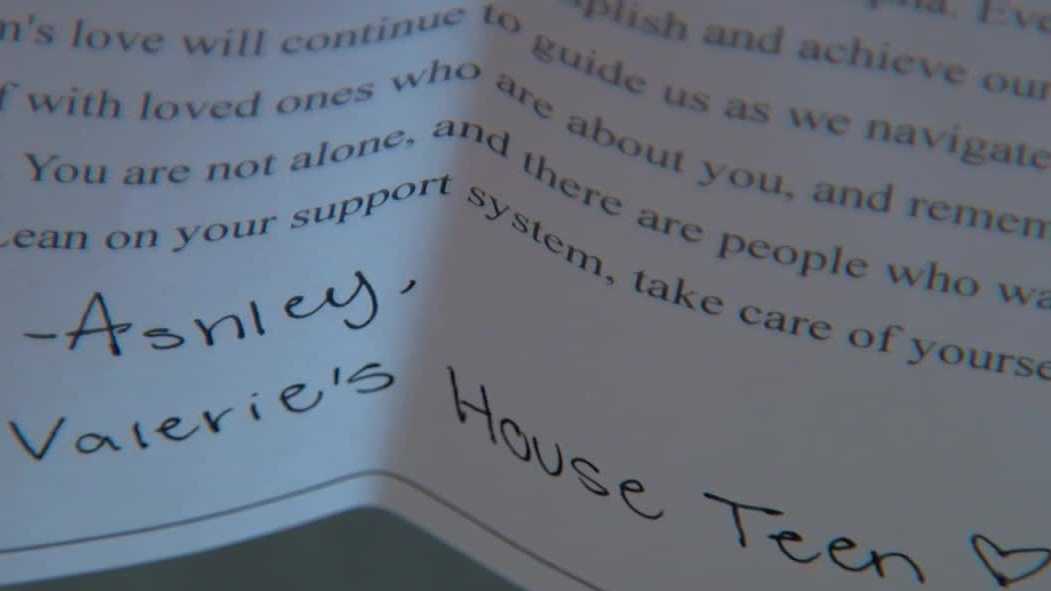 plish and achieve our
love will continue to guide us as we navigate
with loved ones who are about you, and remem
You are not alone, and there are people who wa
Lean on your support system, take care of yourse
-Ashley,
Valerie's House Teen ♡